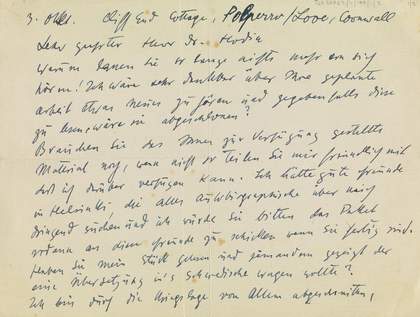 3. Okt. Cliff End Cottage, Polperro/Looe, Cornwall
Sehr geehrter Herr Dr. Hodin
warum lassen Sie so lange nichts mehr von sich
hören! Ich wäre sehr dankbar über Ihre geplante
arbeit etwas neues zu hören und gegebenfalls diese
zu lesen wäre sie abgeschlossen?
Brauchen Sie das Ihnen zur Verfügung gestellte
Material noch, wenn nicht so teilen Sie mir freundlich mit
daß ich darüber verfügen kann. Ich hätte gute freunde
in Helsinki, die alles Autobiographische über mich
dringend suchen und ich würde Sie bitten das Paket
an diese freunde zu schicken wenn Sie fertig sind.
Haben Sie mein Stück gelesen und jemandem gezeigt der
eine Übersetzung in's Schwedische wagen wollte?
Ich bin durch die Kriegslage von Allem abgeschnitten,